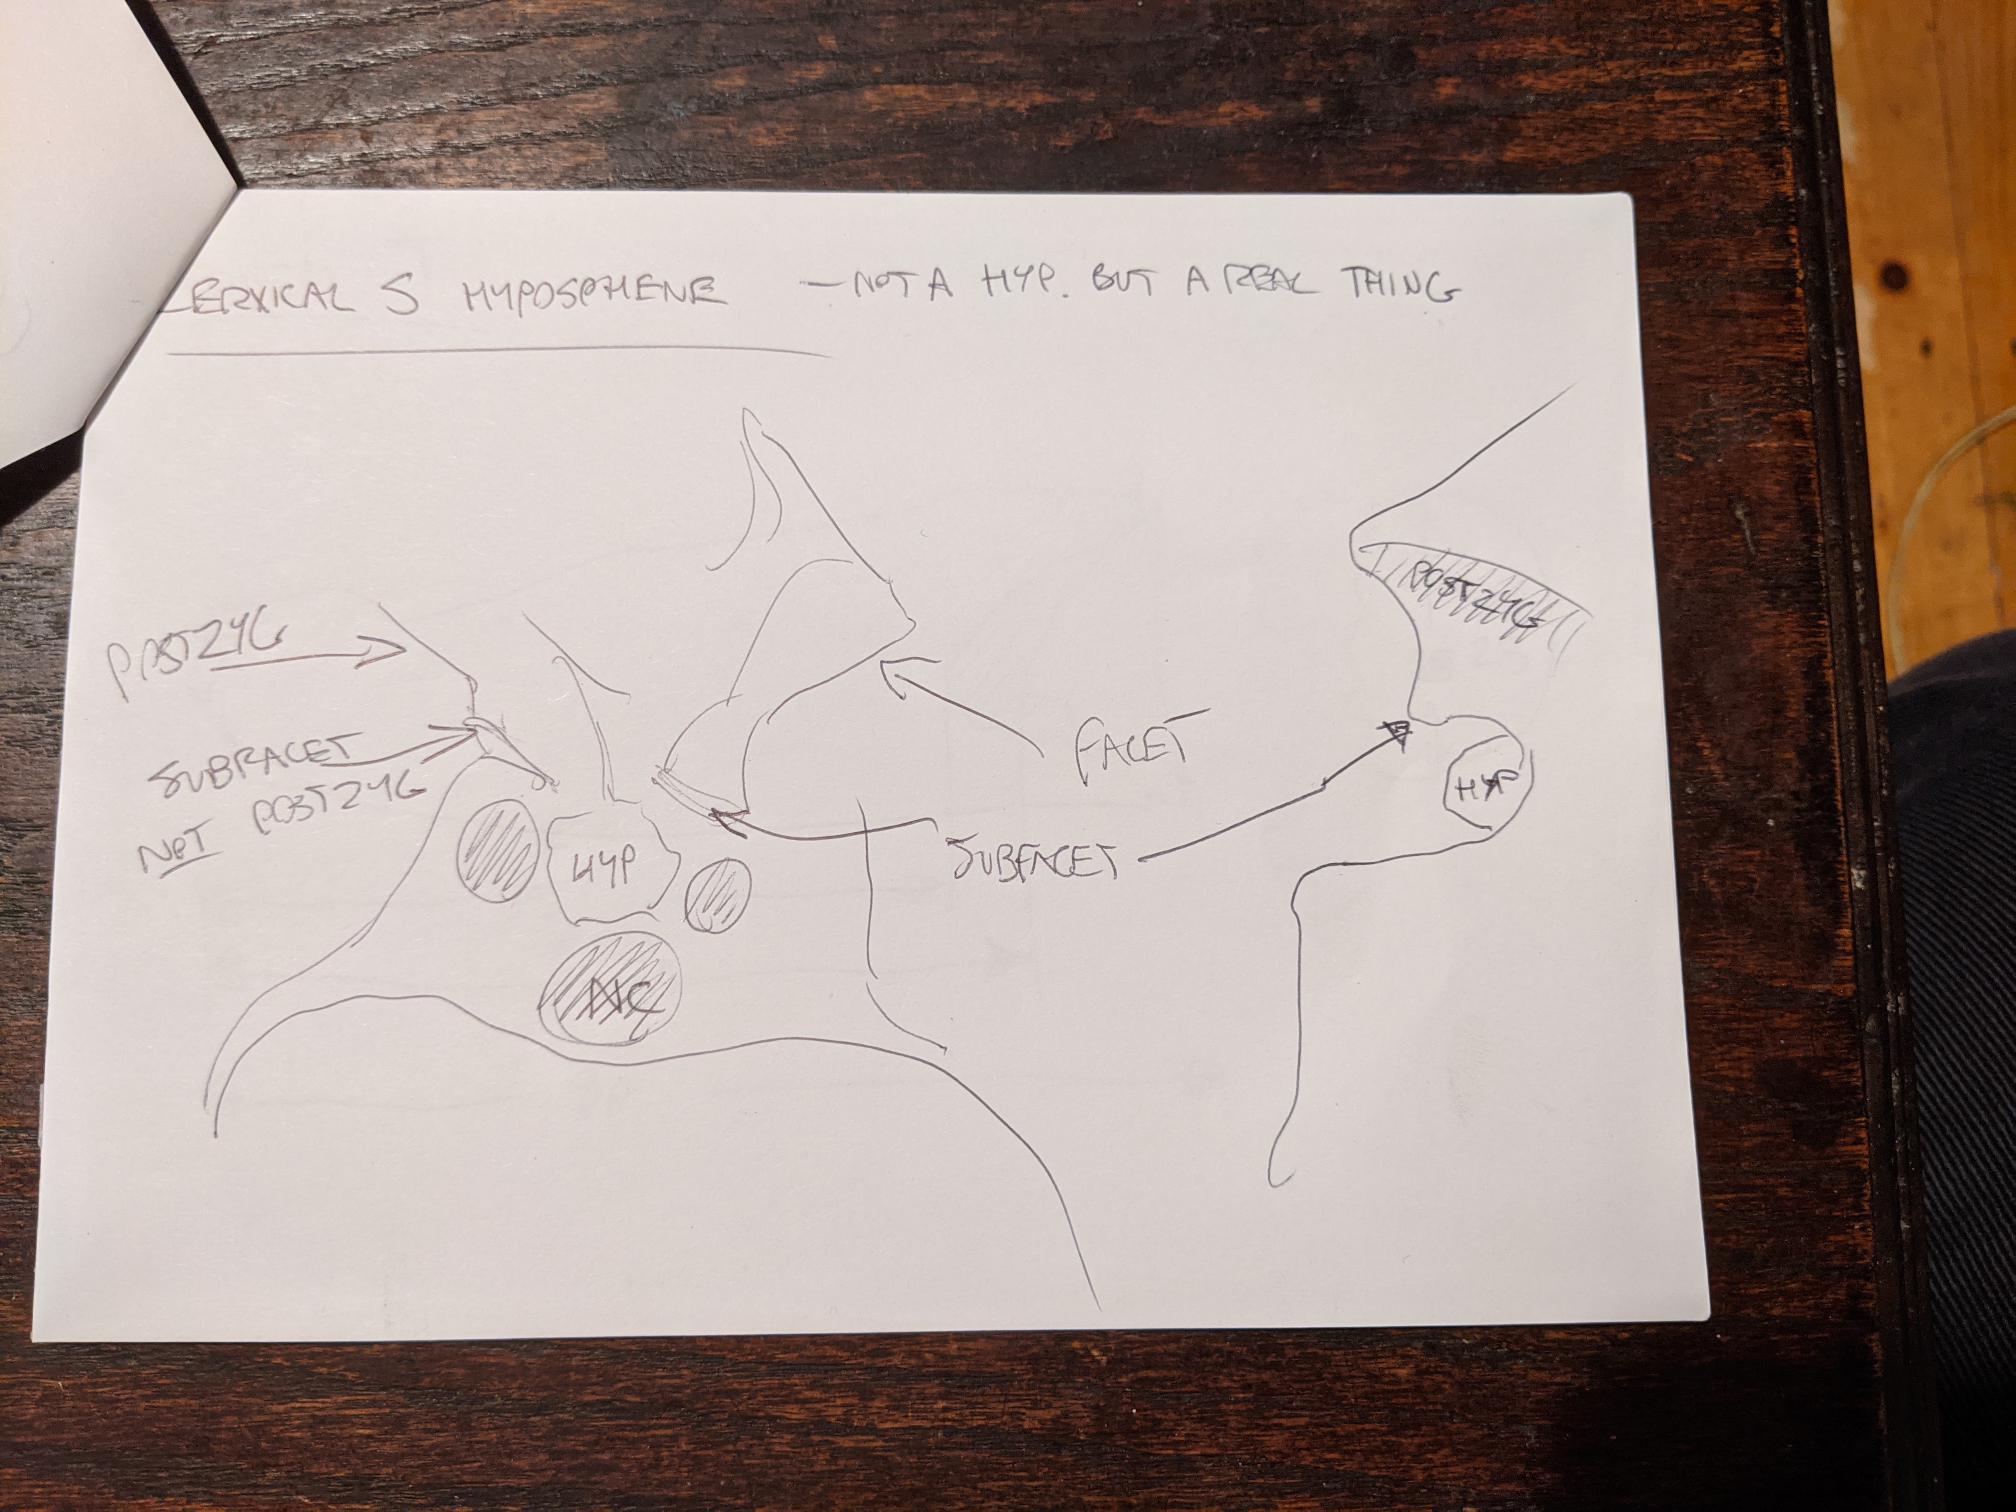 CERVICAL S HYPOSPHENE — NOT A HYP. BUT A REAL THING
POSTZYG
SUBFACET
NOT POSTZYG
HYP
NC
FACET
SUBFACET
POSTZYG
HYP